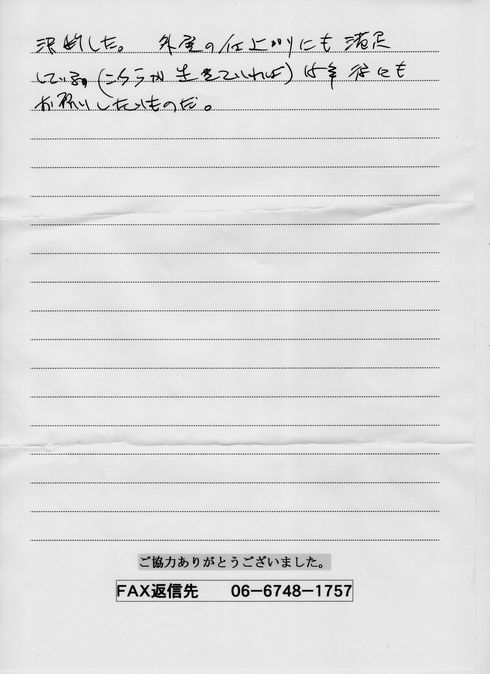 決断した。 外壁の仕上がりにも満足
している。(こちらが生きていれば) 15年後にも
お願いしたいものだ。
ご協力ありがとうございました。
FAX返信先 06-6748-1757